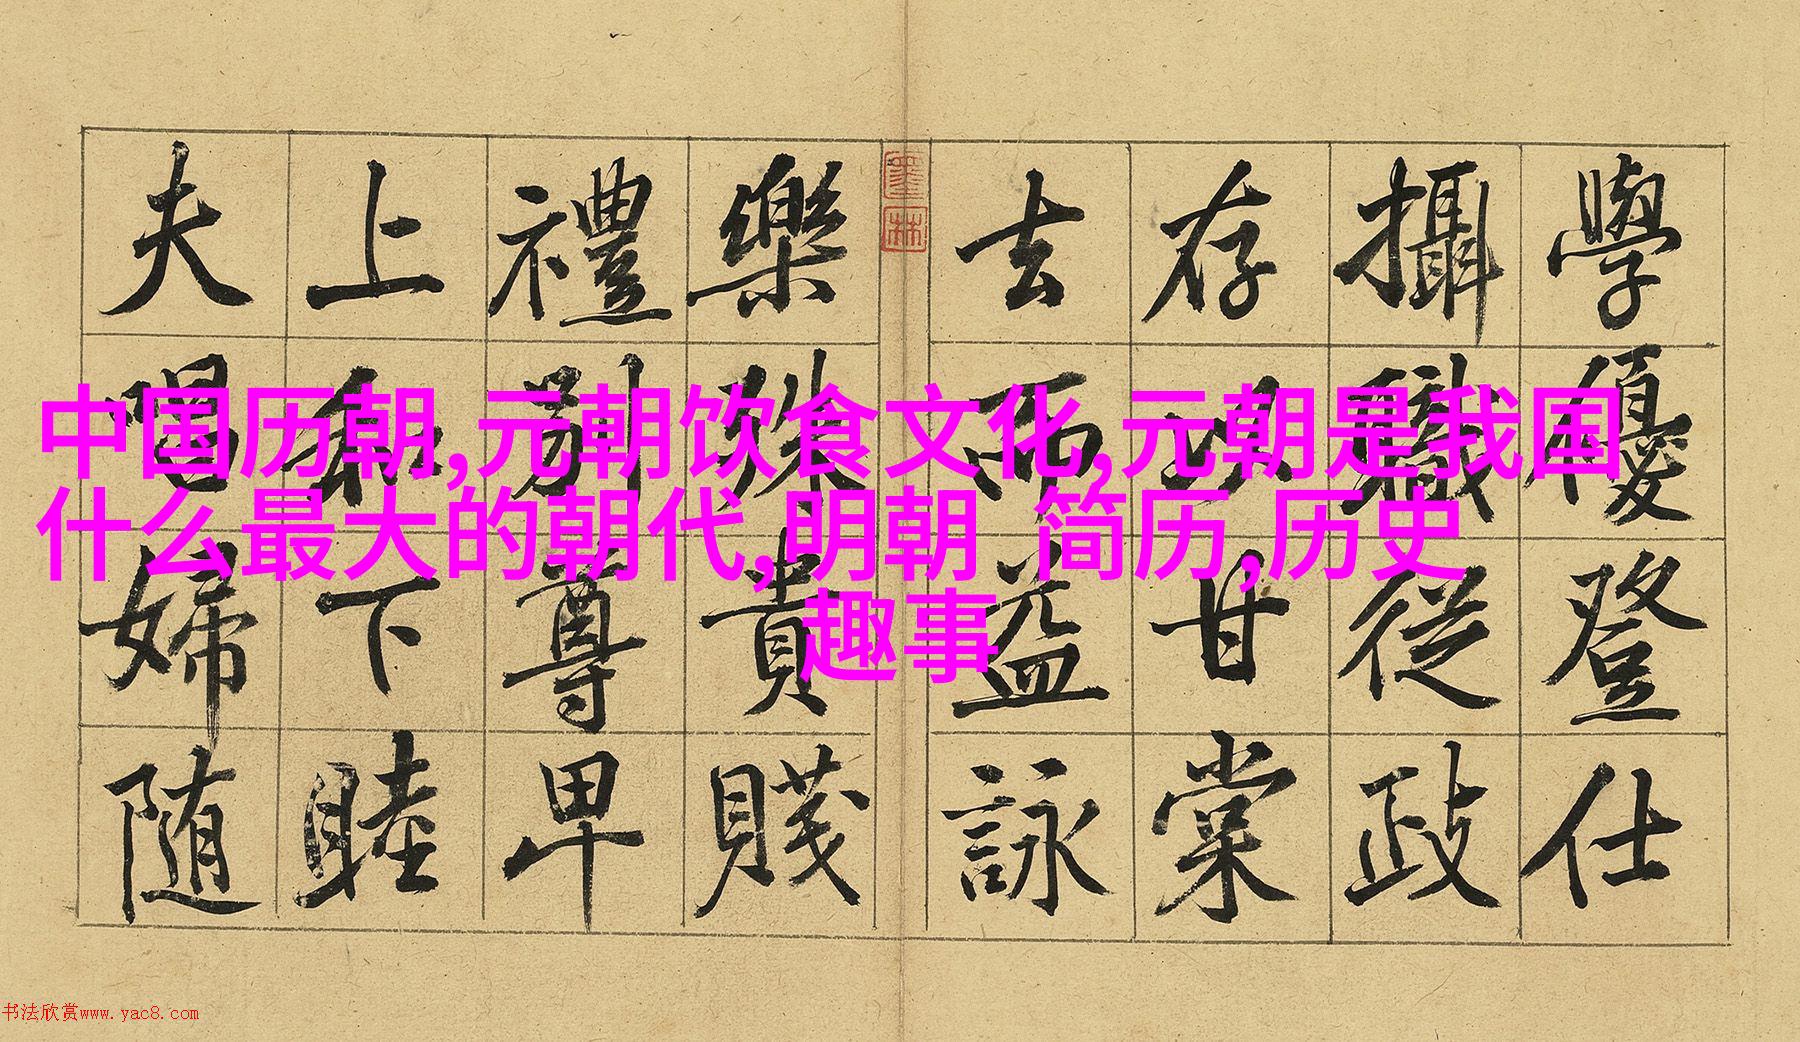 中国历朝,元朝饮食文化,元朝是我国
什么最大的朝代,明朝 简历,历史
趣事
學優登仕
攝職從政
存以甘棠
去而益詠
墨林
樂殊貴賤
禮別尊卑
上和下睦
夫唱婦随
书法欣赏www.yac8.com